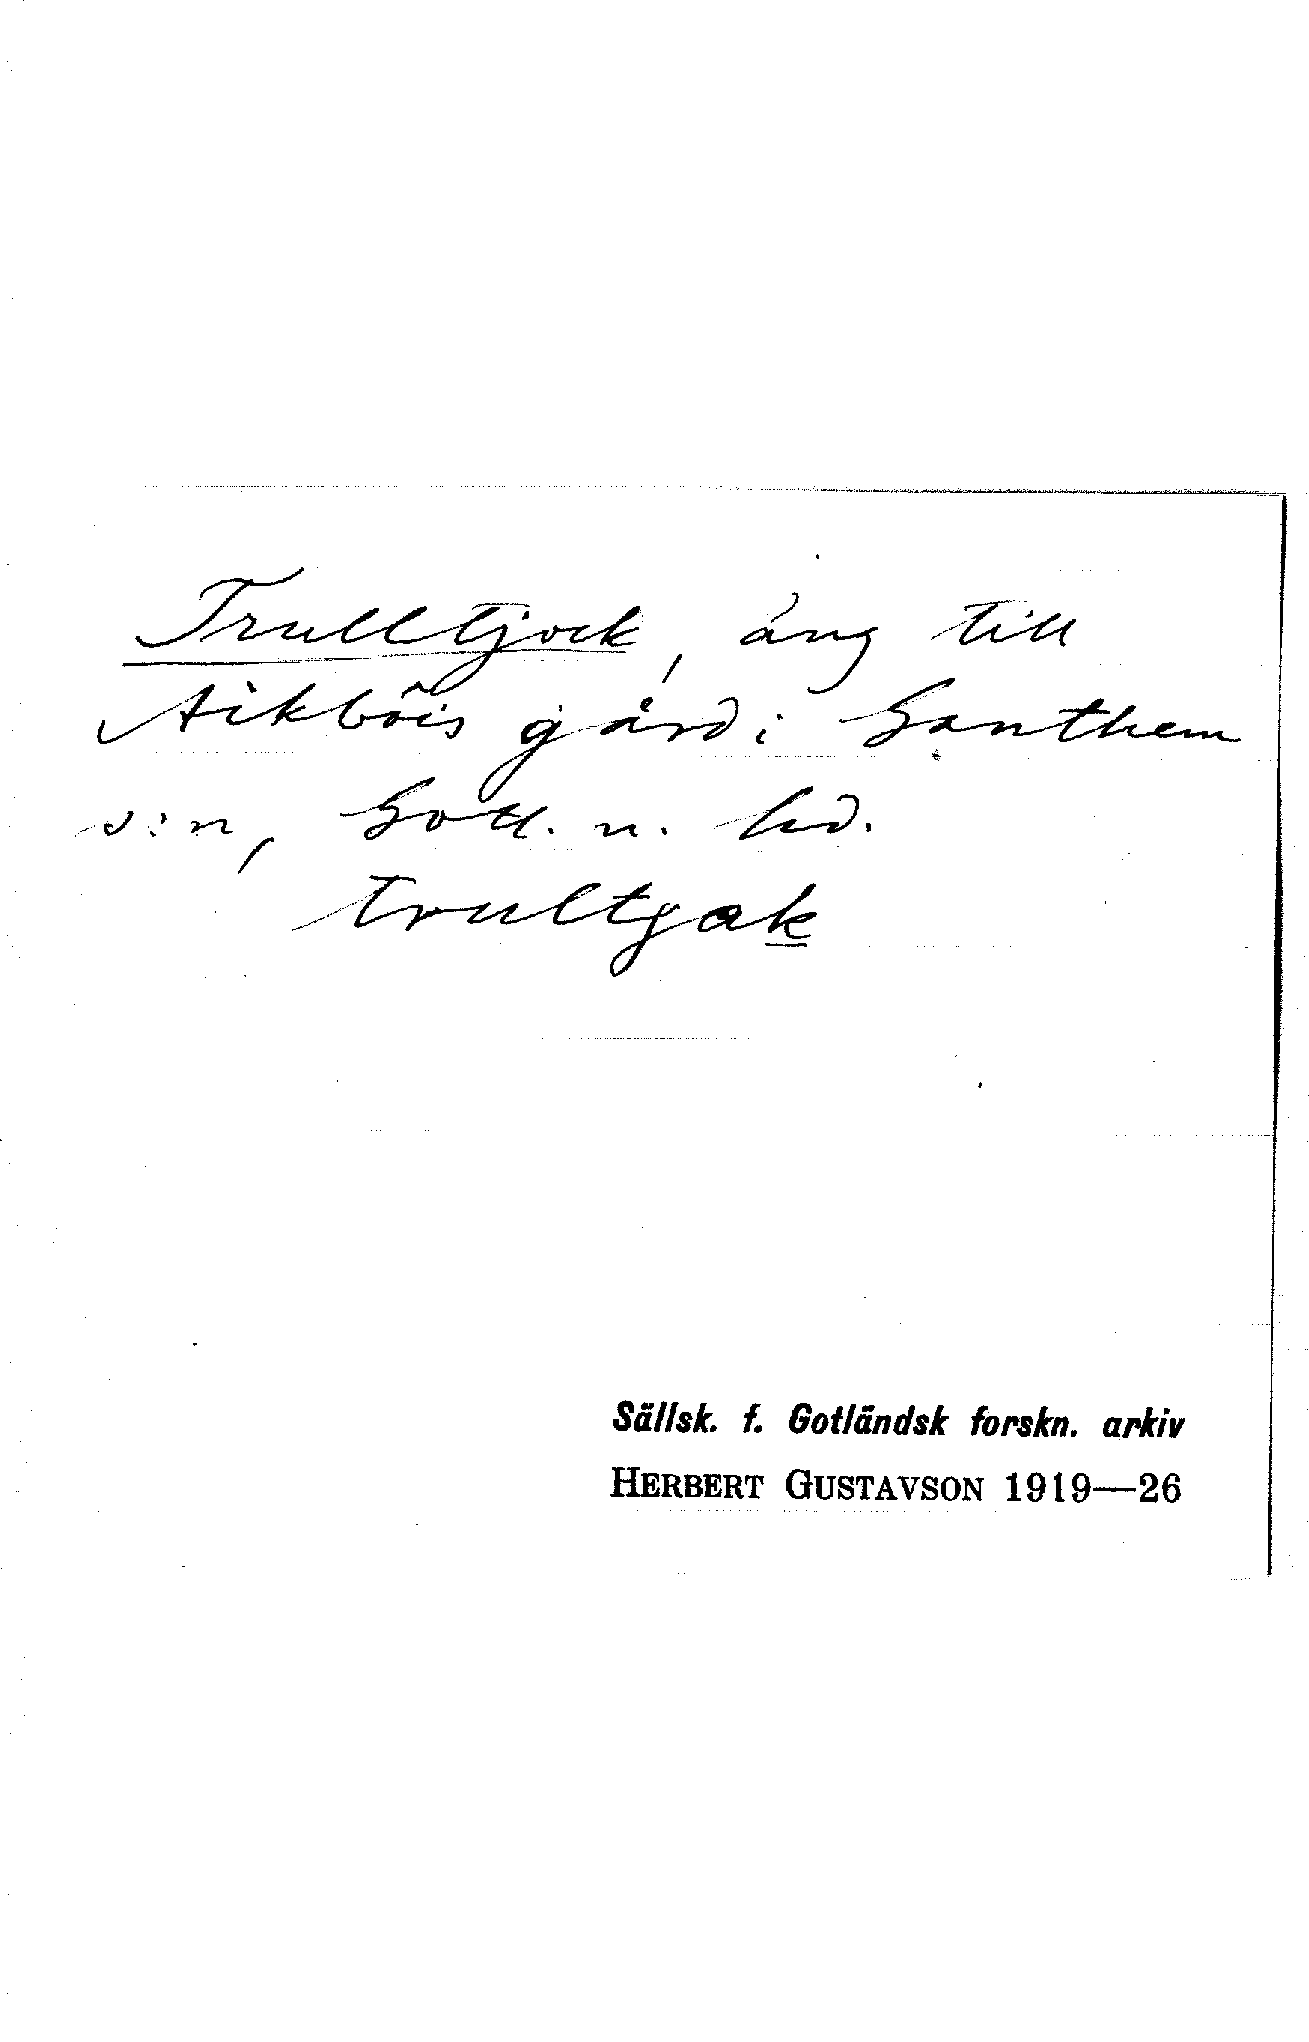 Trulltjock, äng till
Aikböis gård i Ganthem
s:n, Gotl. n. hd.
trultjak
Sällsk. f. Gotländsk forskn. arkiv
HERBERT GUSTAVSON 1919—26